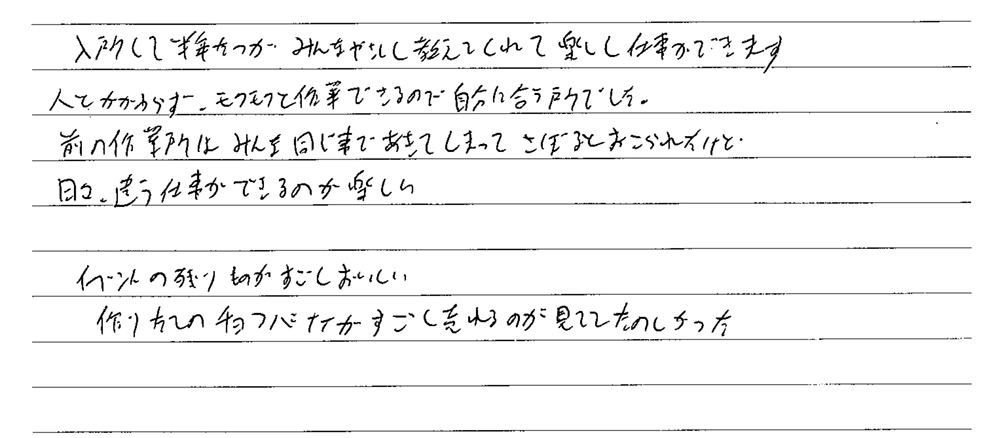 入所して半年たつが みんなやさしく教えてくれて楽しく仕事ができます
人とかかわらず、モクモクと作業できるので自分に合う所でした。
前の作業所はみんな同じ事であきてしまって さぼるとおこられたけど
日々、違う仕事ができるのが楽しい
イベントの残りものがすごくおいしい
作りたての チョコバナナがすごく売れるのが見ててたのしかった